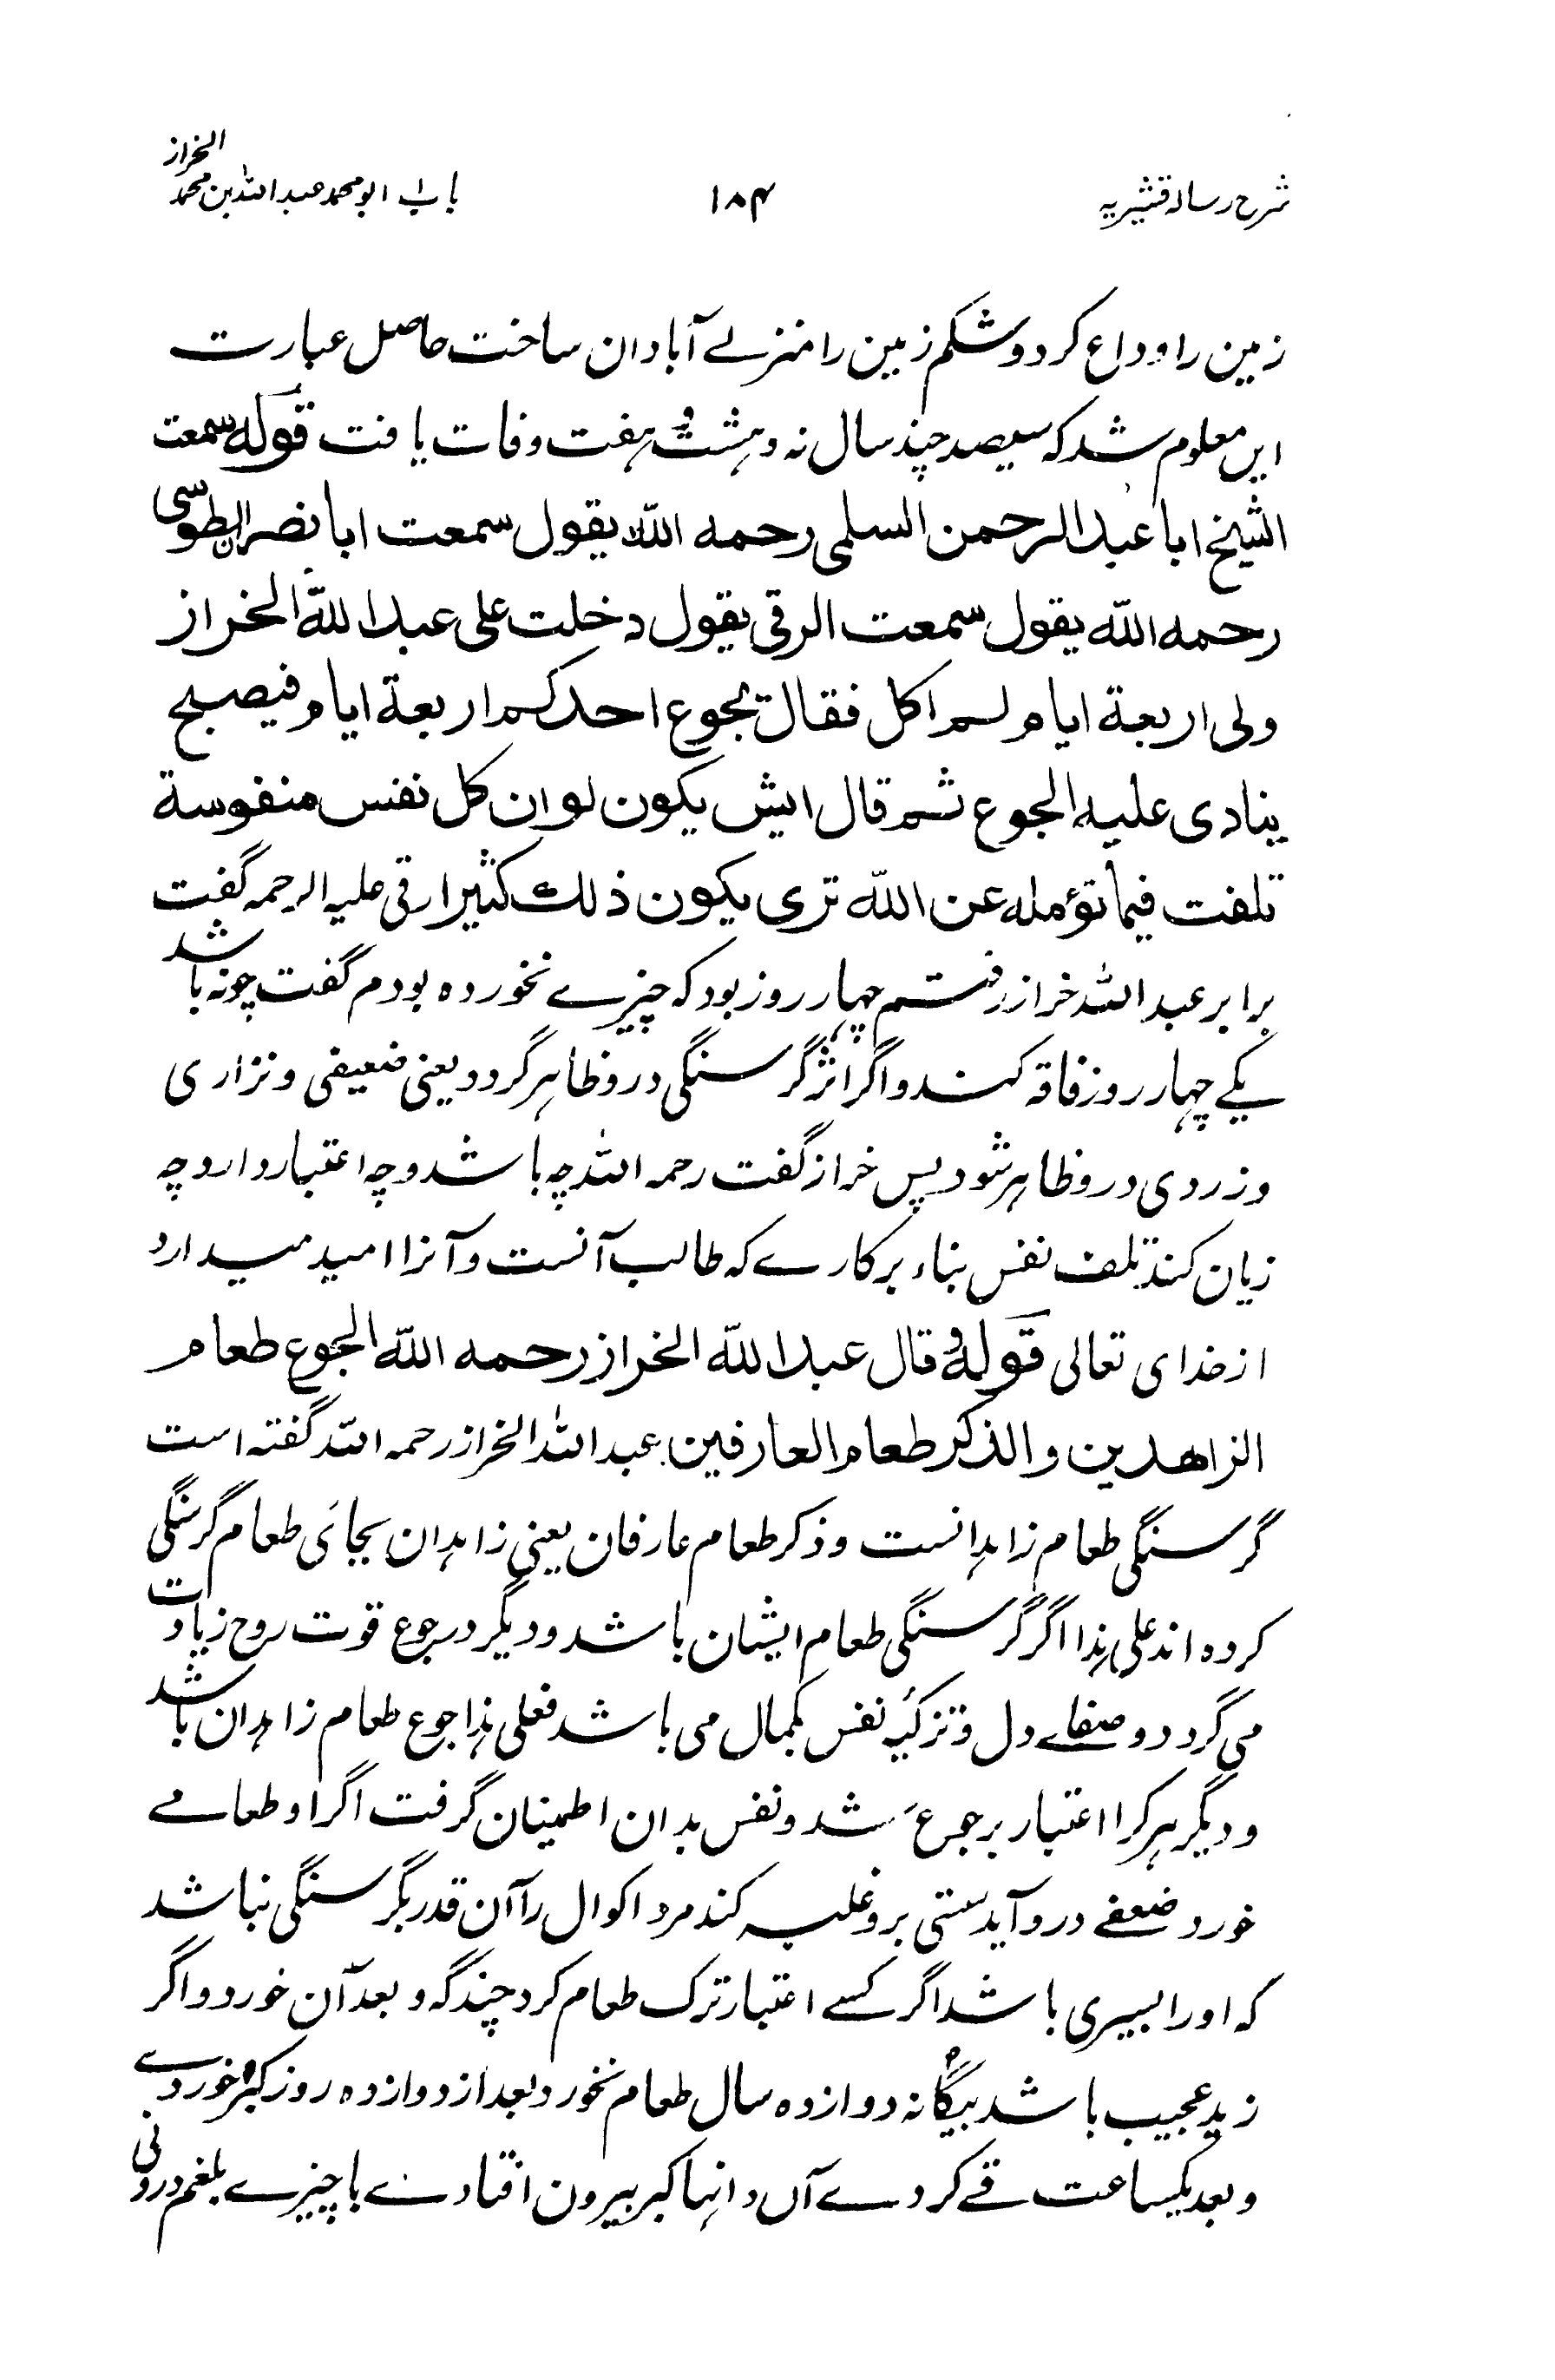 شرح رساله قشیریه ۱۸۴ باب ابو محمد عبد اللہ بن محمد الخراز
زمین را وداع کرد و شکم زمین را منزلے آبادان ساخت حاصل عبارت
این معلوم شد که سیصد چند سال نه و هشت و هفت وفات یافت قوله سمعت
الشیخ ابا عبد الرحمن السلمی رحمه الله یقول سمعت ابا نصر الطوسی
رحمه الله یقول سمعت الرقی یقول دخلت علی عبد الله الخراز
ولی اربعة ایام لم اکل فقال یجوع احدکم اربعة ایام فیصبح
ینادی علیه الجوع ثم قال ایش یکون لو ان کل نفس منفوسة
تلفت فیما تؤمله عن الله تری یکون ذلك کثیرا رقی علیه الرحمه گفت
برابر عبد اللہ خراز رفتم چهار روز بود که چیزے نخورده بودم گفت چونه باشد
یکے چهار روز فاقه کند و اگر اثر گرسنگی درو ظاهر گردد یعنی ضعیفی و نزاری
و زردی درو ظاهر شود پس خراز گفت رحمه اللہ چه باشد و چه اعتبار دارد چه
زیان کند تلف نفس بناء بر کارے که طالب آنست و آنرا امید میدارد
از خدای تعالی قوله و قال عبد الله الخراز رحمه الله الجوع طعام
الزاهدین و الذکر طعام العارفین عبد اللہ الخراز رحمه اللہ گفته است
گرسنگی طعام زاهدانست و ذکر طعام عارفان یعنی زاهدان بجائی طعام گرسنگی
کرده اند علی هذا اگر گرسنگی طعام ایشان باشد و دیگر در جوع قوت روح زیادت
می گردد و صفاے دل و تزکیهٔ نفس بکمال می باشد فعلی هذا جوع طعام زاهدان باشد
و دیگر هر کرا اعتبار بر جوع شد و نفس بدان اطمینان گرفت اگر او طعامے
خورد ضعفے درو آید سستی برو غلبه کند مرد اکوال را آن قدر بگرسنگی نباشد
که او را بسیری باشد اگر کسے اعتبار ترک طعام کرد چند گه و بعد آن خورد و اگر
زید عجیب باشد بیگانه دوازده سال طعام نخورد بعد از دوازده روز خوردے
و بعد یکساعت قے کردے آں دانها بیرون افتادے با چیزے بلغم درونی